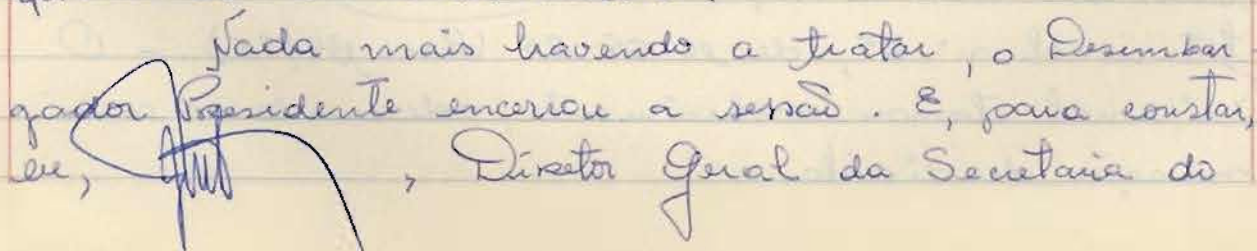 Nada mais havendo a tratar, o Desembar
gador Presidente encerrou a sessão. E, para constar,
eu, , Diretor Geral da Secretaria do